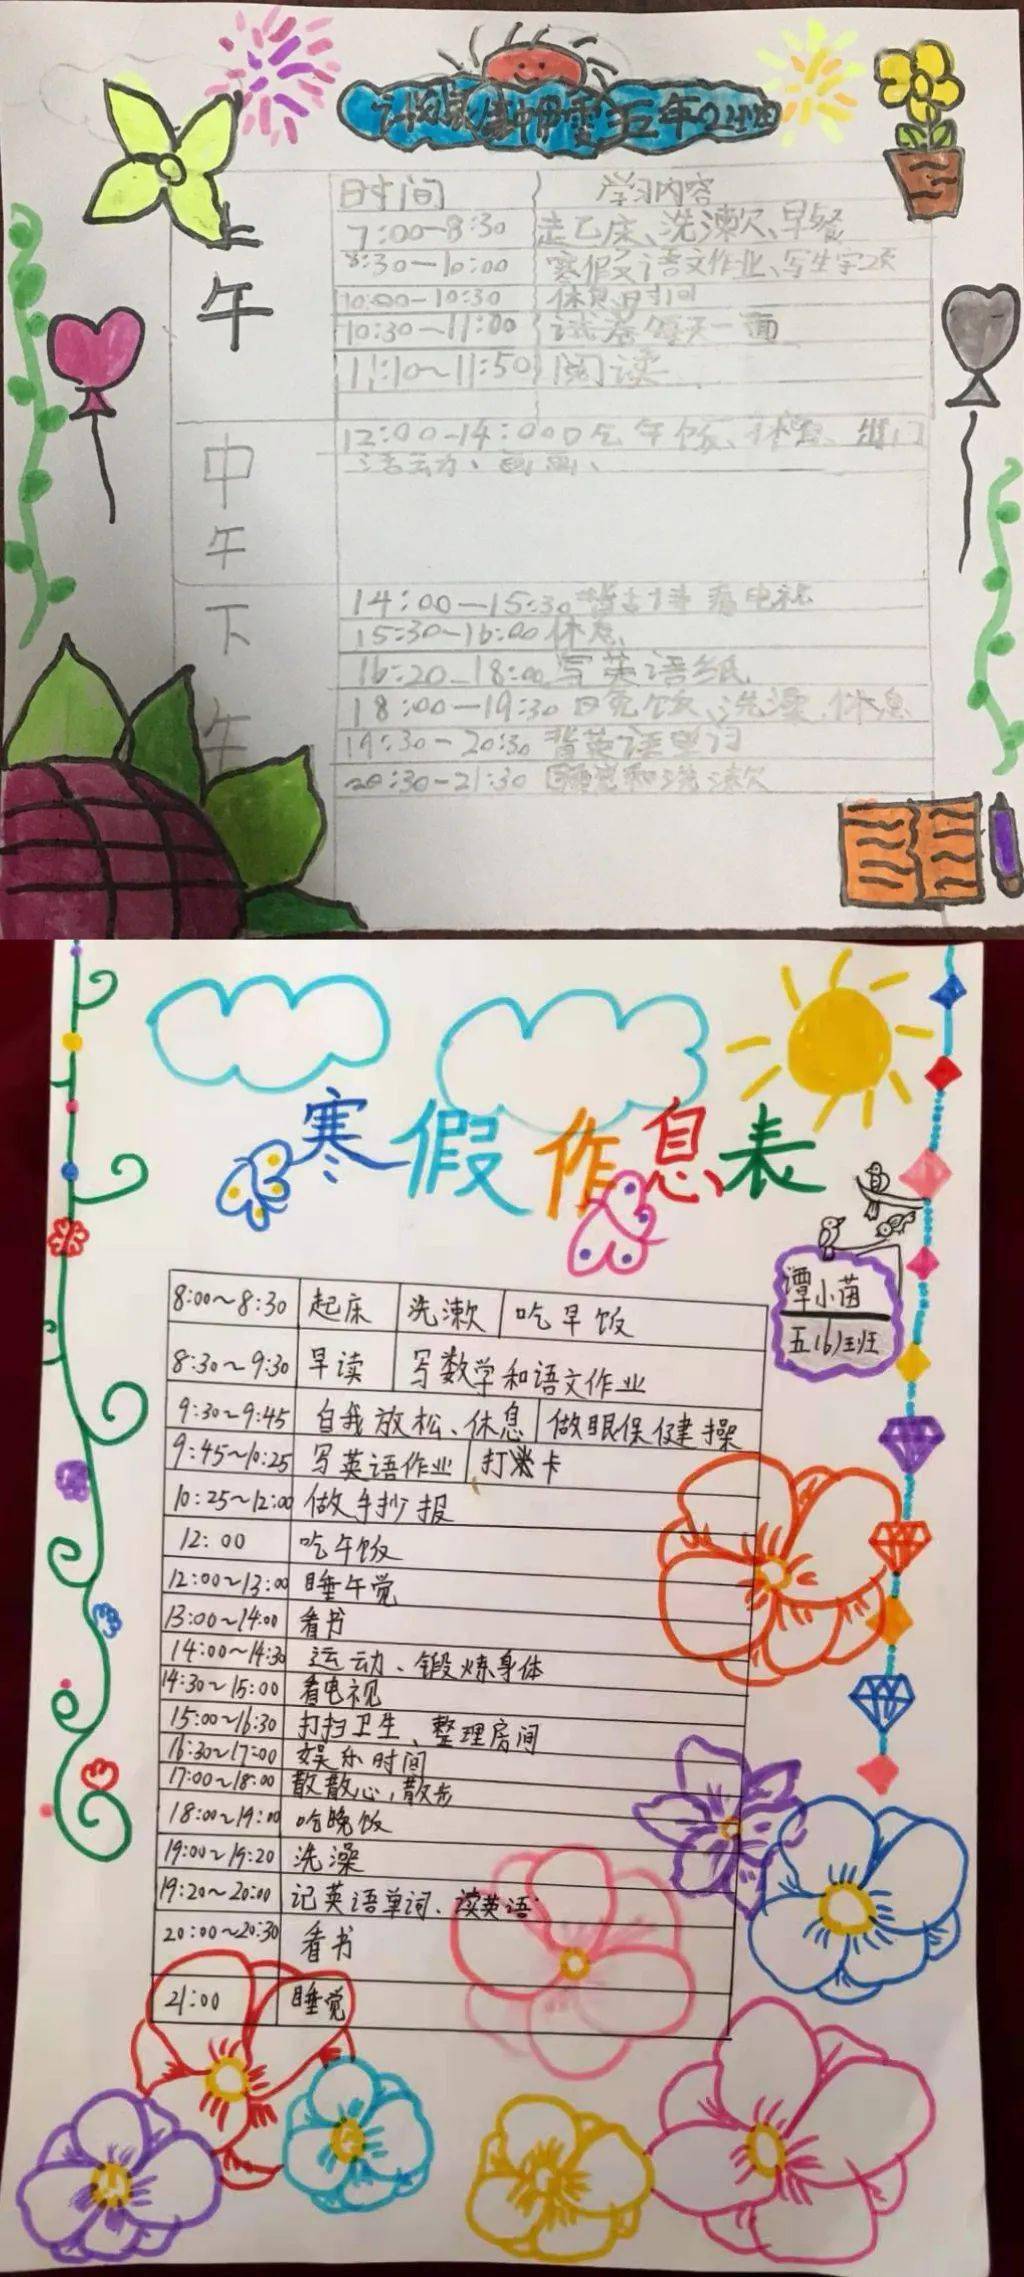 上午
时间 学习内容
7:00-8:30 起床、洗漱、早餐
8:30-10:00 寒假语文作业、写生字2页
10:00-10:30 休息时间
10:30-11:00 试卷每天一面
11:10~11:50 阅读
中午
12:00-14:00 吃午饭、休息、出门
活动、画画、
下午
14:00-15:30 背古诗 看电视
15:30-16:00 休息
16:20-18:00 写英语纸
18:00-19:30 吃饭、洗澡、休息
19:30-20:30 背英语单词
20:30-21:30 睡觉和洗漱
寒假作息表
谭小苗
五(6)班
8:00~8:30 起床 洗漱 吃早饭
8:30~9:30 早读 写数学和语文作业
9:30~9:45 自我放松、休息 做眼保健操
9:45~10:25 写英语作业 打卡
10:25~12:00 做手抄报
12:00 吃午饭
12:00~13:00 睡午觉
13:00~14:00 看书
14:00~14:30 运动、锻炼身体
14:30~15:00 看电视
15:00~16:30 打扫卫生、整理房间
16:30~17:00 娱乐时间
17:00~18:00 散散心,散步
18:00~19:00 吃晚饭
19:00~19:20 洗澡
19:20~20:00 记英语单词、读英语
20:00~20:30 看书
21:00 睡觉